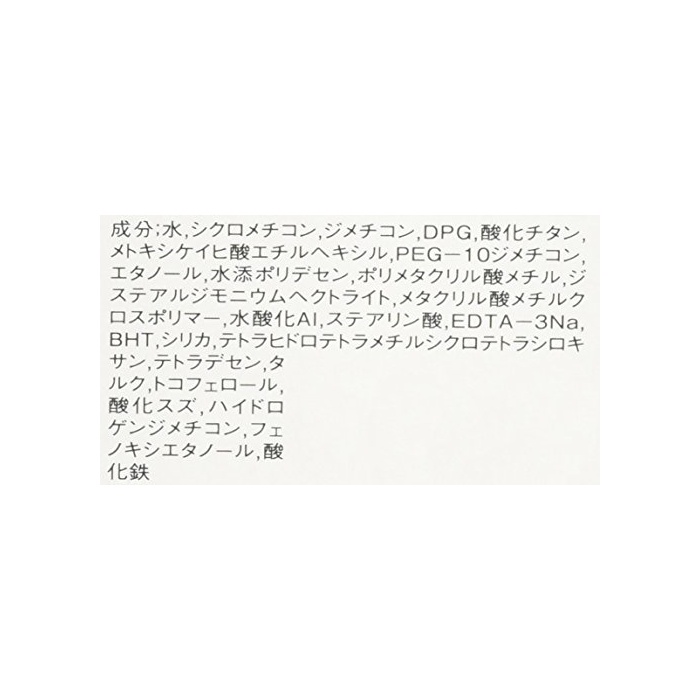 成分;水,シクロメチコン,ジメチコン,DPG,酸化チタン,
メトキシケイヒ酸エチルヘキシル,PEG－10ジメチコン,
エタノール,水添ポリデセン,ポリメタクリル酸メチル,ジ
ステアルジモニウムヘクトライト,メタクリル酸メチルク
ロスポリマー,水酸化Al,ステアリン酸,EDTA－3Na,
BHT,シリカ,テトラヒドロテトラメチルシクロテトラシロキ
サン,テトラデセン,タ
ルク,トコフェロール,
酸化スズ,ハイドロ
ゲンジメチコン,フェ
ノキシエタノール,酸
化鉄